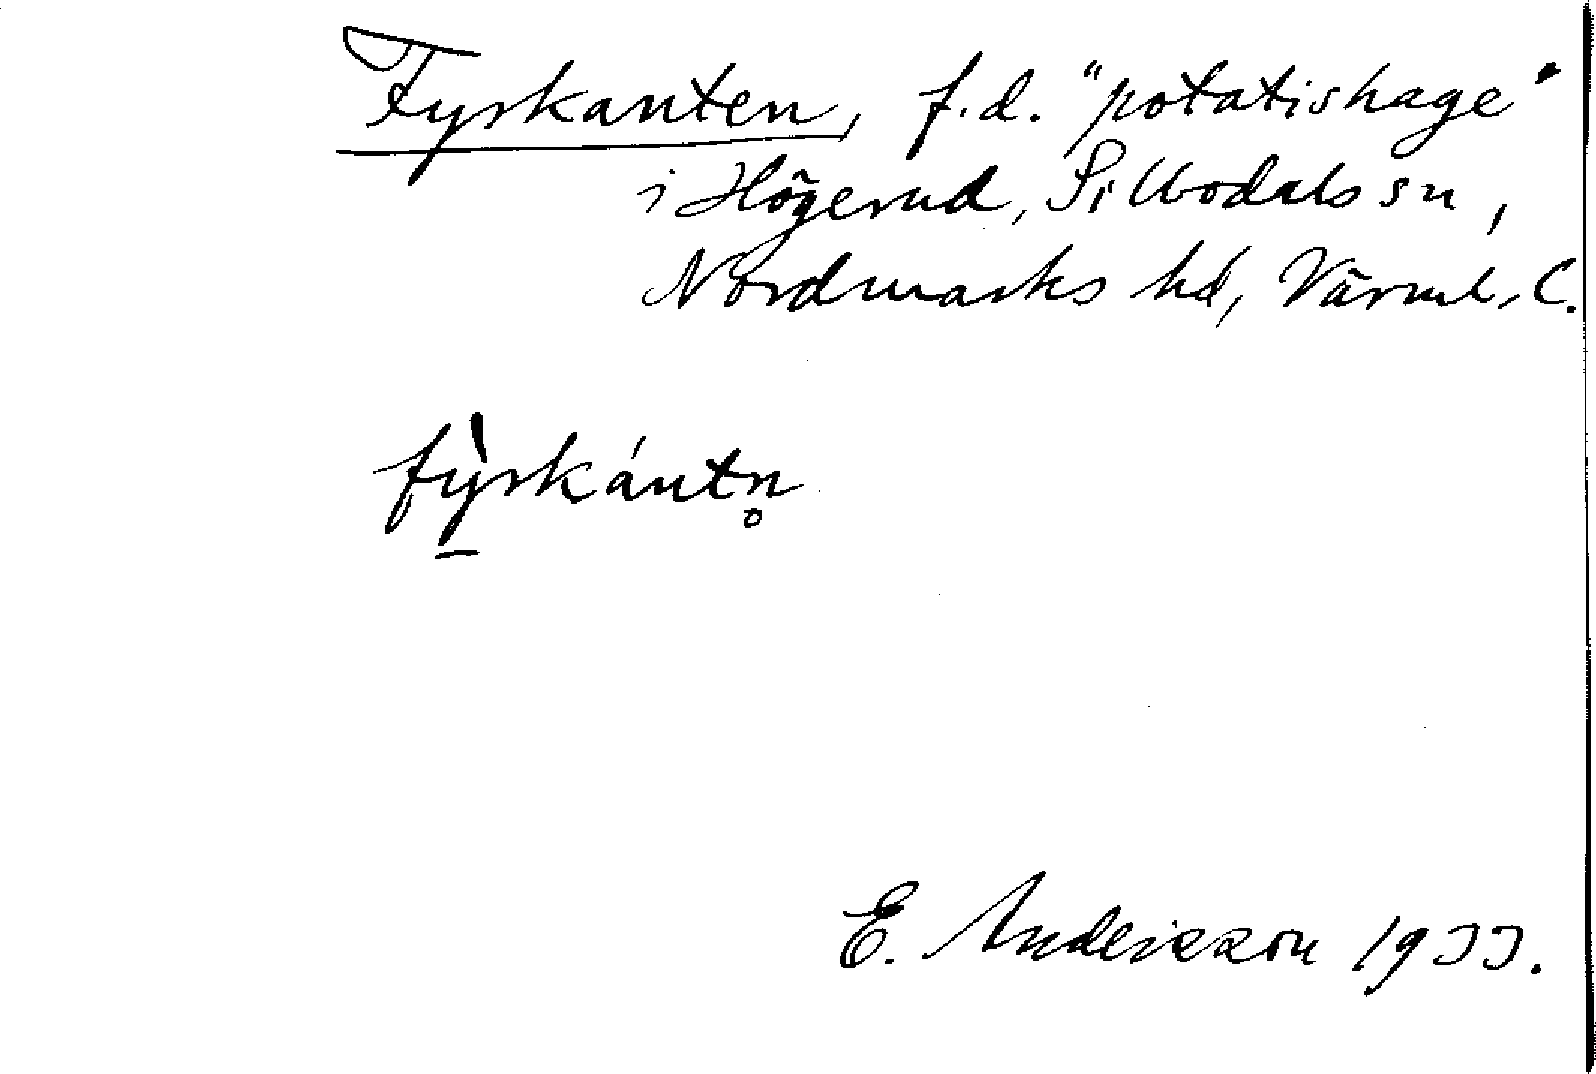 Fyrkanten, f.d. "potatishage"
i Högerud, Sillbodals sn,
Nordmarks hd, Värml. l.
fỳrkántn̥
E. Andersson 1933.